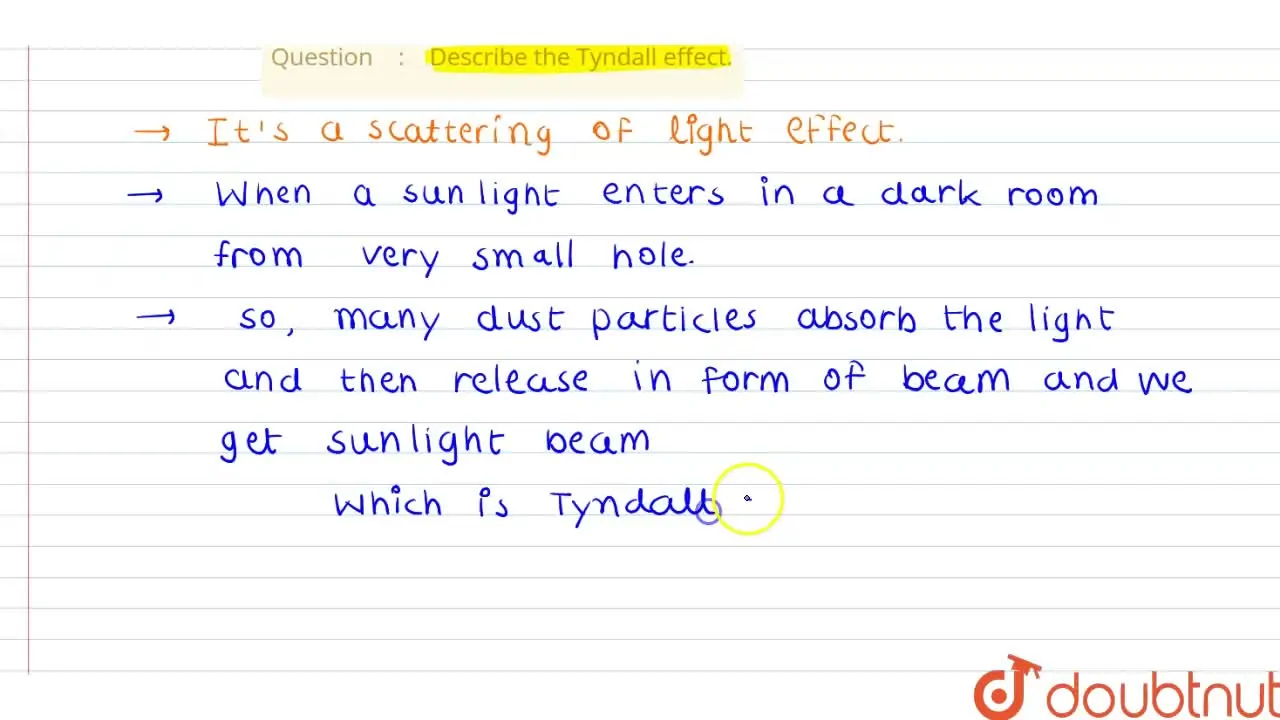 Question : Describe the Tyndall effect.
→ It's a scattering of light effect.
→ When a sunlight enters in a dark room
from very small hole.
→ so, many dust particles absorb the light
and then release in form of beam and we
get sunlight beam
Which is Tyndall
doubtnut